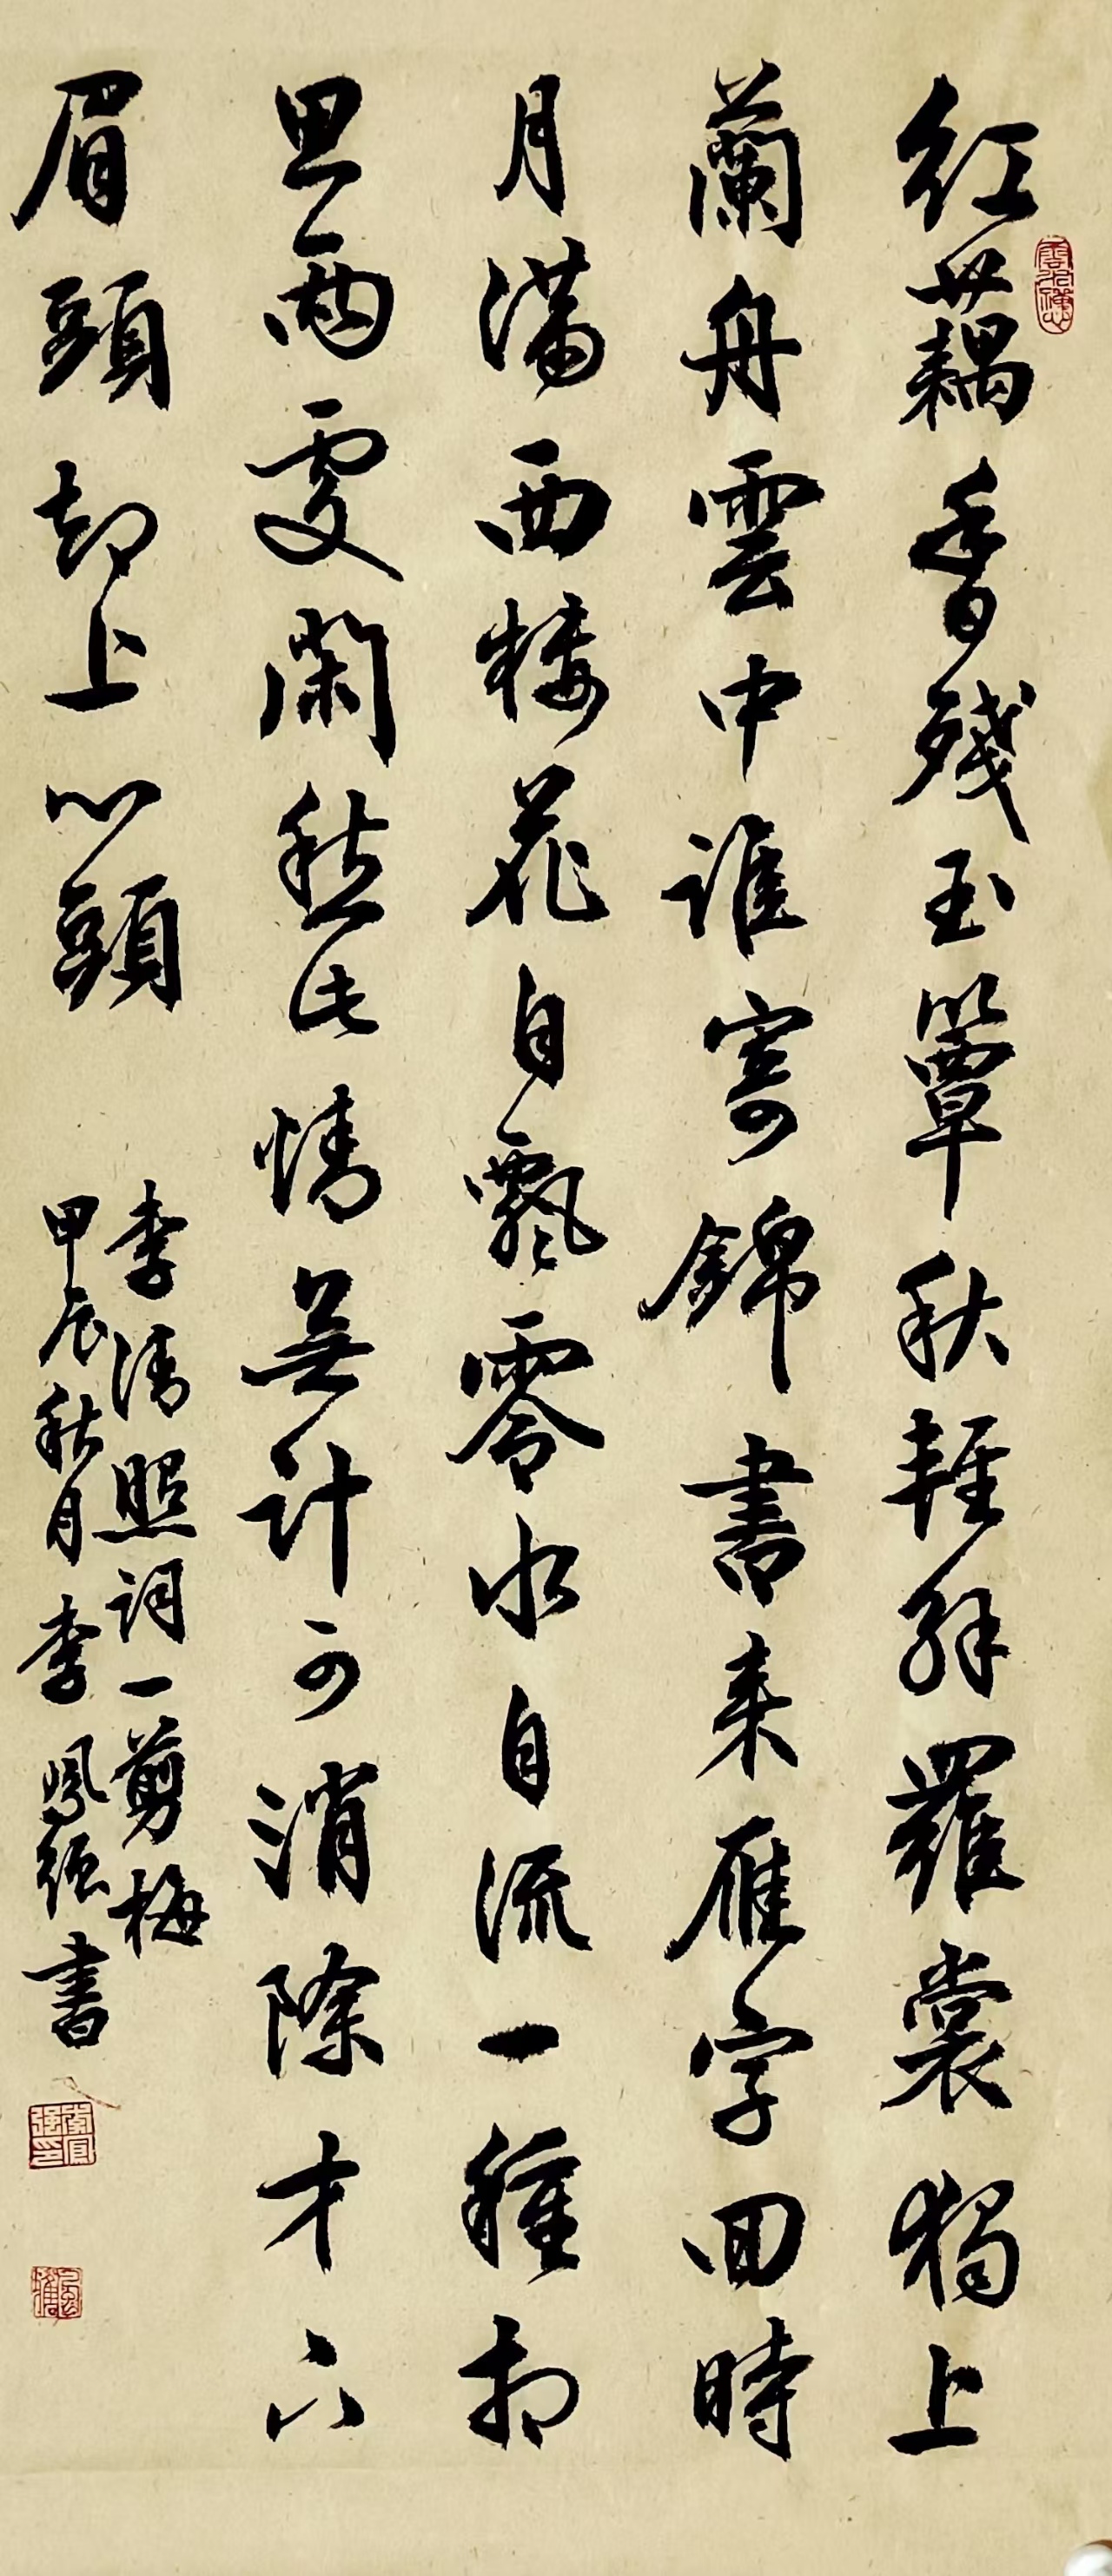 红藕香殘玉簟秋輕解羅裳獨上
蘭舟雲中誰寄錦書来雁字回時
月滿西楼花自飄零水自流一種相
思兩處閑愁此情無計可消除才下
眉頭却上心頭
李清照詞一剪梅
甲辰秋月李鳳强書